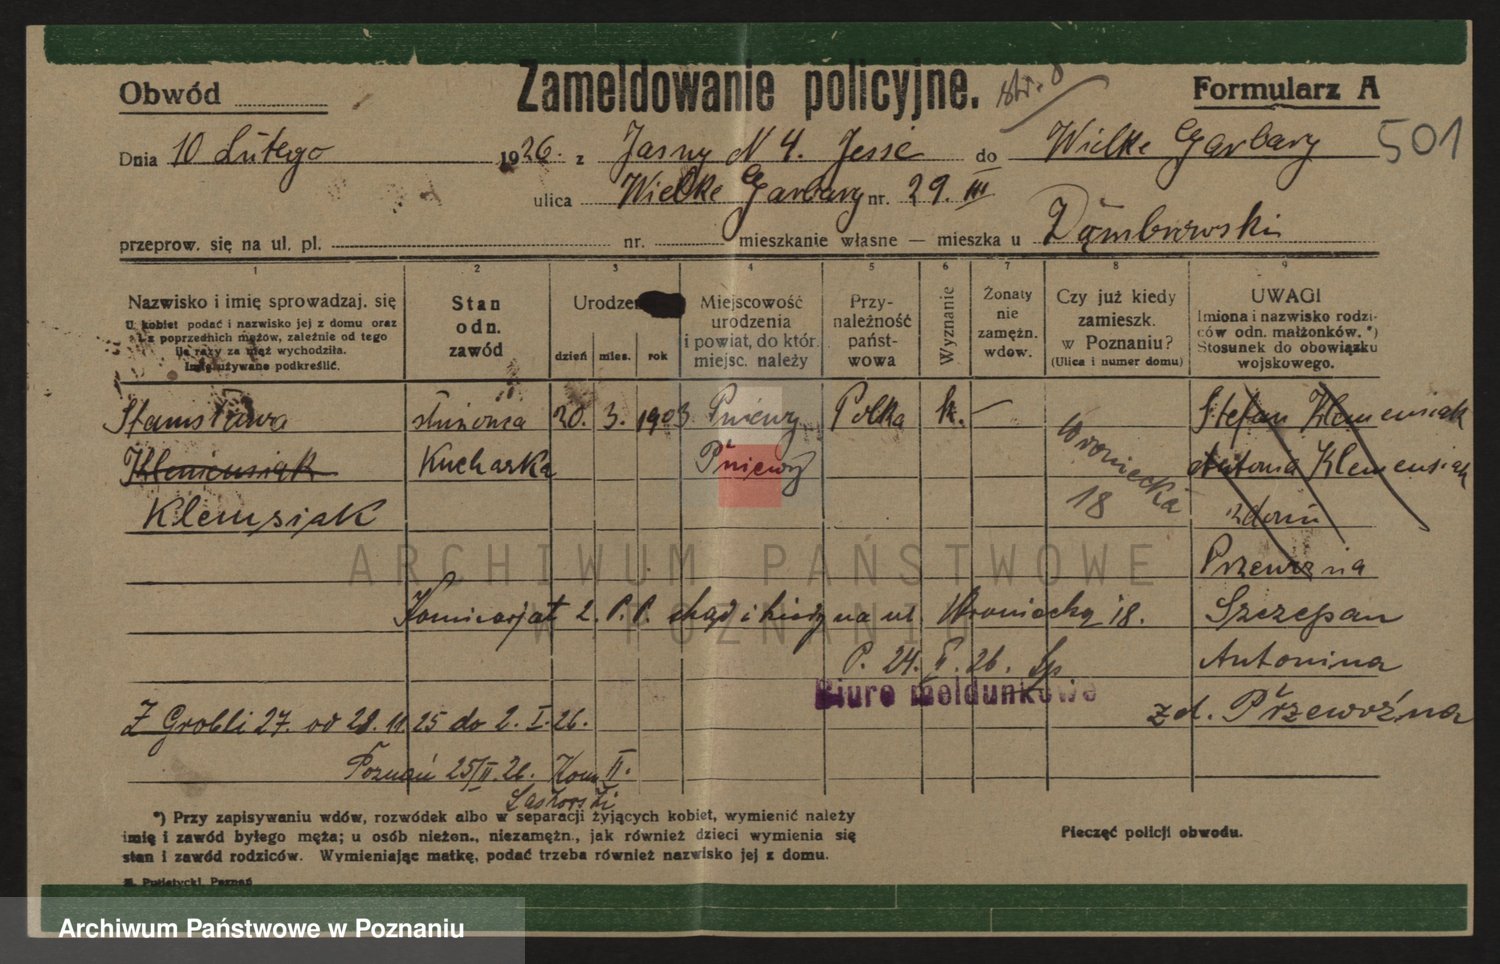 Obwód
Zameldowanie policyjne.
str. 8
Formularz A
501
Dnia 10 Lutego 1926. z Jasny N 4. do Wielke Garbary
ulica Wielke Garbary nr. 29. III
przeprow. się na ul. pl. nr. mieszkanie własne — mieszka u Dąmbrowski
1 2 3 4 5 6 7 8 9
Nazwisko i imię sprowadzaj. się
U. kobiet podać i nazwisko jej z domu oraz
i z poprzednich mężów, zależnie od tego
ile razy za mąż wychodziła.
Imię używane podkreślić.
Stan
odn.
zawód
Urodzen
dzień mies. rok
Miejscowość
urodzenia
i powiat, do któr.
miejsc. należy
Przy-
należność
państ-
wowa
Wyznanie
Żonaty
nie
zamężn.
wdow.
Czy już kiedy
zamieszk.
w Poznaniu?
(Ulica i numer domu)
UWAGI
Imiona i nazwisko rodzi-
ców odn. małżonków. *)
Stosunek do obowiązku
wojskowego.
Stanisława służąca 20. 3. 1903 Pniewy Polka k. — Stefan Klemensiak
Klemensiak Kucharka Pniewy Wroniecka Antonia Klemensiak
Klemsiak 18 zdomu
Przewozna
Komisarjat 2. P.P. skąd i kiedy na ul Wroniecką 18. Szczepan
P. 24. II. 26. Antonina
Biuro meldunkowe
Z Grobli 27. od 28. 11. 25 do 2. I. 26. zd. Przewoźna
Poznań 25/II. 26. Kom II.
*) Przy zapisywaniu wdów, rozwódek albo w separacji żyjących kobiet, wymienić należy
imię i zawód byłego męża; u osób nieżon., niezamężn., jak również dzieci wymienia się
stan i zawód rodziców. Wymieniając matkę, podać trzeba również nazwisko jej z domu.
Pieczęć policji obwodu.
Putiatycki, Poznań
ARCHIWUM PAŃSTWOWE
W POZNANIU
Archiwum Państwowe w Poznaniu